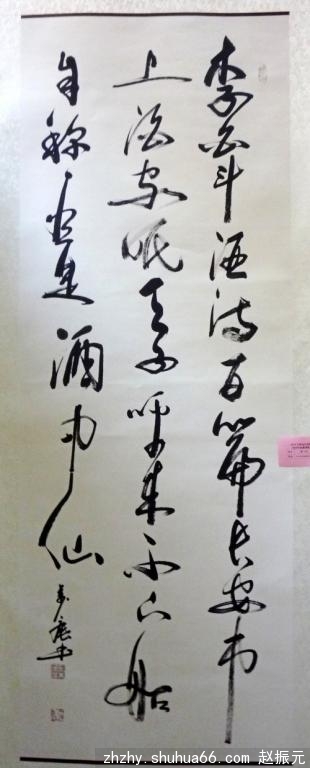 李白斗酒诗百篇长安市
上酒家眠天子呼来不上船
自称臣是酒中仙
zhzhy.shuhua66.com 赵振元